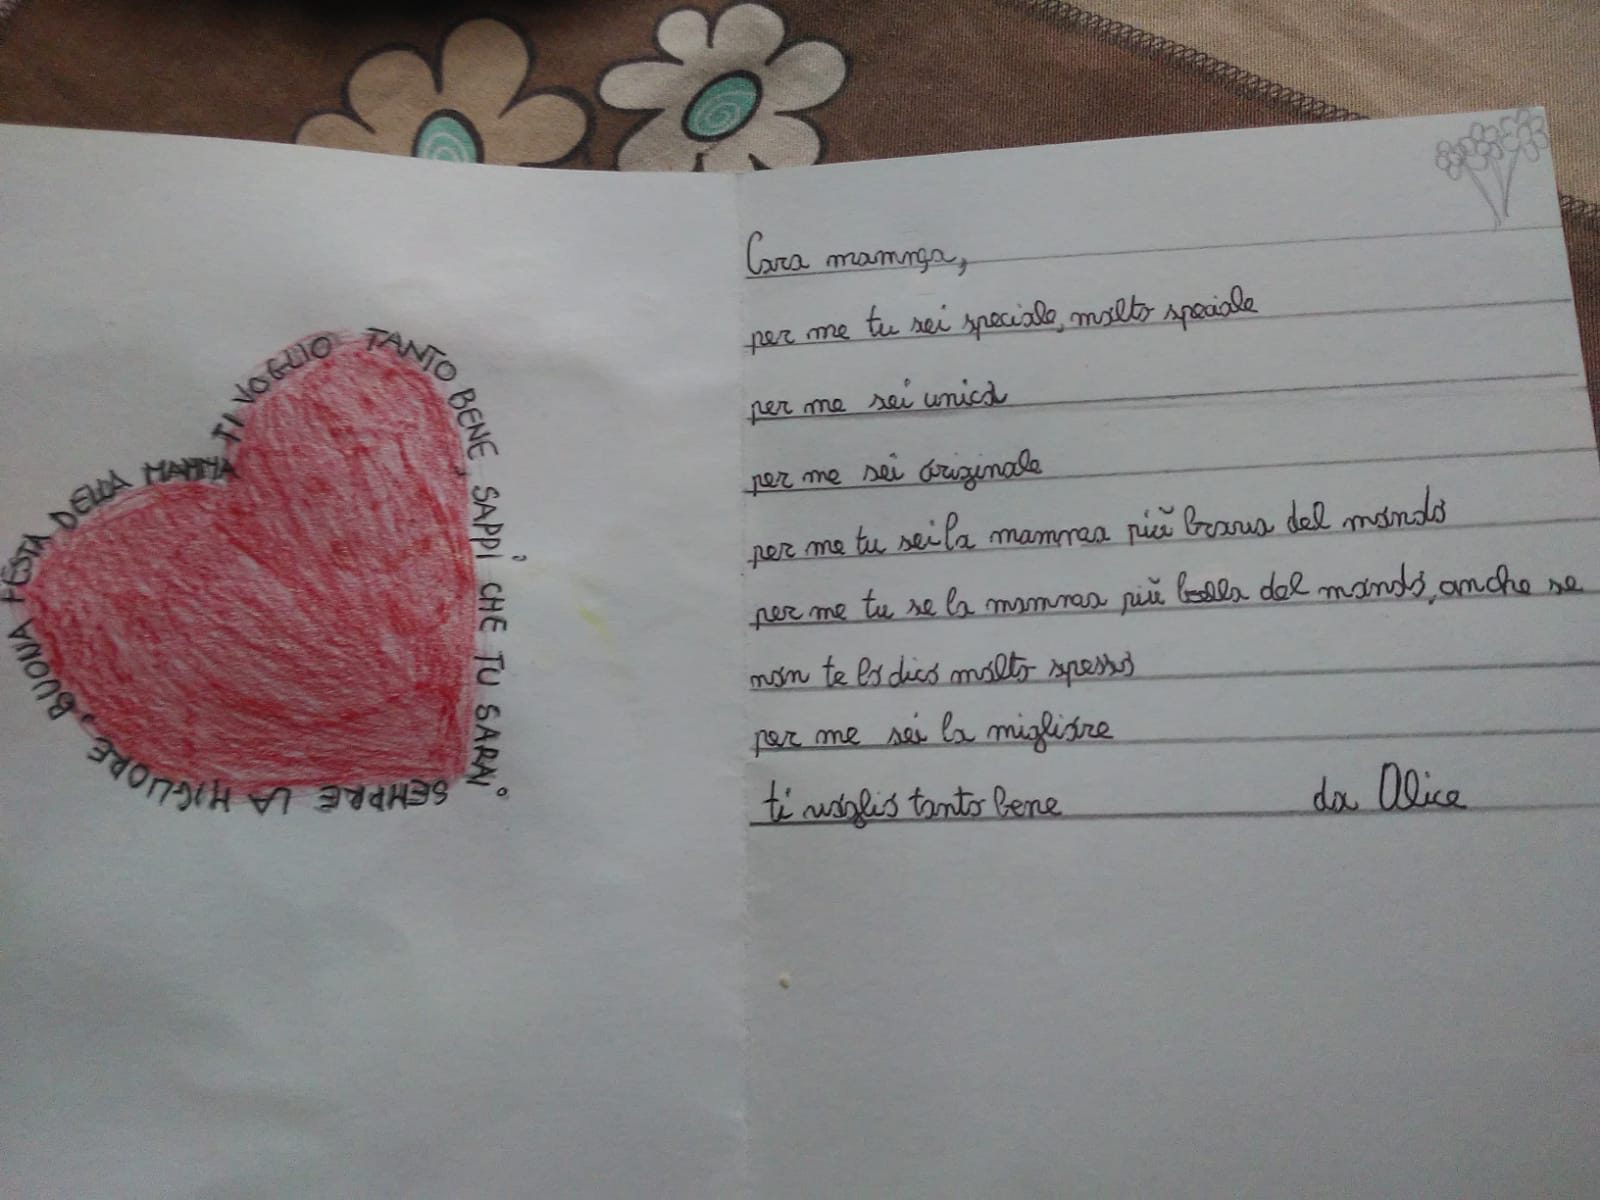 BUONA FESTA DELLA MAMMA TI VOGLIO TANTO BENE, SAPPI CHE TU SARAI SEMPRE LA MIGLIORE,
Cara mamma,
per me tu sei speciale, molto speciale
per me sei unica
per me sei originale
per me tu sei la mamma più brava del mondo
per me tu se la mamma più bella del mondo, anche se
non te lo dico molto spesso
per me sei la migliore
ti voglio tanto bene da Alice